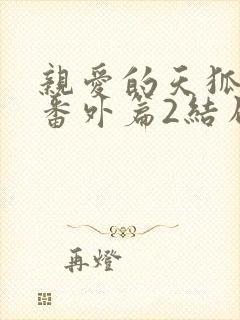 親愛的天狐
番外篇2結
再燈